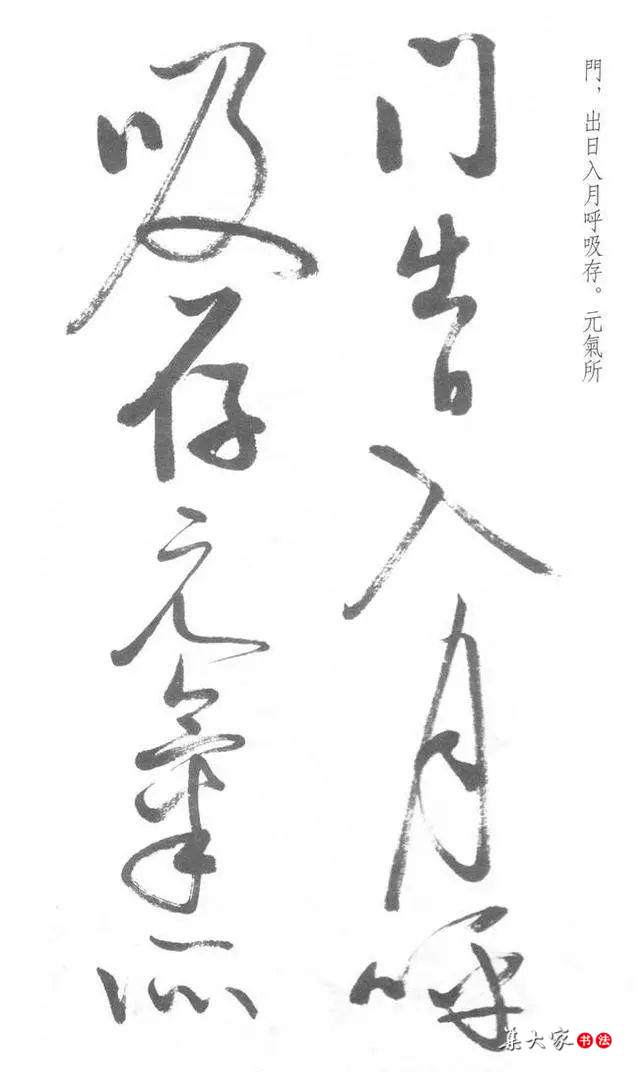 門，出日入月呼吸存。元氣所
门出日入月呼
吸存元氣所
集大家书法